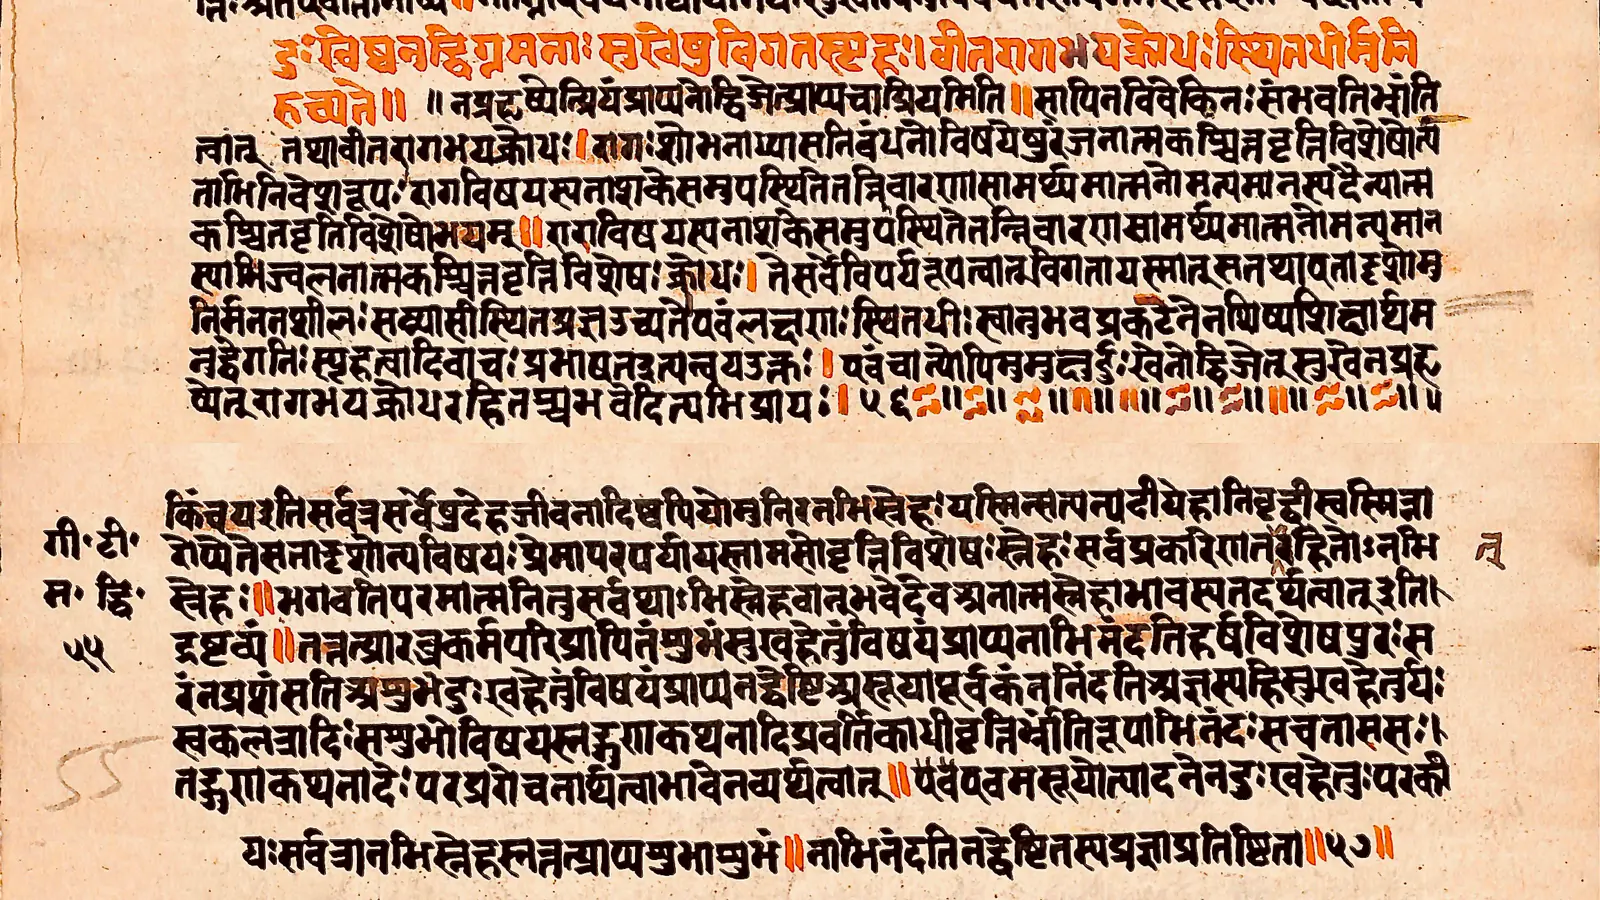 दुःखेष्वनुद्विग्नमनाः सुखेषु विगतस्पृहः। वीतरागभयक्रोधः स्थितधीर्मुनि
रुच्यते॥ ॥ न प्रहृष्येत्प्रियं प्राप्य नोद्विजेत्प्राप्य चाप्रियमिति॥ सापि न विवेकिनः संभवति भ्रांति
त्वात् तथा वीतरागभयक्रोधः। रागः शोभनाध्यासनिबंधनो विषयेषु रंजनात्मकश्चित्तवृत्तिविशेषोत्य
ताभिनिवेशरूपः रागविषयस्य नाशके समुपस्थिते तन्निवारणासामर्थ्यमात्मनो मन्यमानस्य दैन्यात्म
कश्चित्तवृत्तिविशेषो भयम्॥ रागविषयस्य नाशके समुपस्थिते तन्निवारणसामर्थ्यमात्मनो मन्यमान
स्याभिज्वलनात्मकश्चित्तवृत्तिविशेषः क्रोधः। ते सर्वे विपर्ययरूपत्वात् विगता यस्मात् स तथा एतादृशो मु
निर्मननशीलः संन्यासी स्थितप्रज्ञ उच्यते एवंलक्षणः स्थितधीः स्वानुभवप्रकटनेन शिष्यशिक्षार्थम
नुद्वेगनिः स्पृहत्वादिवाचः प्रभाषत इत्यन्वय उक्तः। एवं चान्योपि मुमुक्षुर्दुःखे नोद्विजेत् सुखे न प्रहृ
ष्येत् रागभयक्रोधरहितश्च भवेदित्यभिप्रायः। ५६
किंच यइति सर्वत्र सर्वेषु देहजीवनादिष्वपि यो मुनिरनभिस्नेहः यस्मिन्सत्यन्यदीये हानिवृद्धी स्वस्मिन्ना
रोप्येते स तादृशोन्यविषयः प्रेमापरपर्यायस्तामसो वृत्तिविशेषः स्नेहः सर्वप्रकारेण तद्रहितोऽनभि
स्नेहः॥ भगवति परमात्मनि तु सर्वथाऽभिस्नेहवान् भवेदेव अनात्मस्नेहाभावस्य तदर्थत्वात् इति।
द्रष्टव्यं॥ तत्तत्प्रारब्धकर्मपरिप्रापितं शुभं सुखहेतुं विषयं प्राप्य नाभिनंदति हर्षविशेषपुरःस
रं न प्रशंसति अशुभं दुःखहेतुं विषयं प्राप्य न द्वेष्टि असूयापूर्वकं न निंदति अज्ञस्य हि सुखहेतुर्यः
स्वकलत्रादिः स शुभो विषयस्तद्गुणकथनादिप्रवर्तिका धीवृत्तिर्भ्रांतिरूपाभिनंदः स च तामसः।
तद्गुणकथनादेः परप्ररोचनार्थत्वाभावेन व्यर्थत्वात्॥ एवमसूयोत्पादनेन दुःखहेतुः परकी
यः सर्वत्रानभिस्नेहस्तत्तत्प्राप्य शुभाशुभं॥ नाभिनंदति न द्वेष्टि तस्य प्रज्ञा प्रतिष्ठिता॥ ५७॥
गी॰ टी॰
म॰ द्वि॰
५५
५५
त्